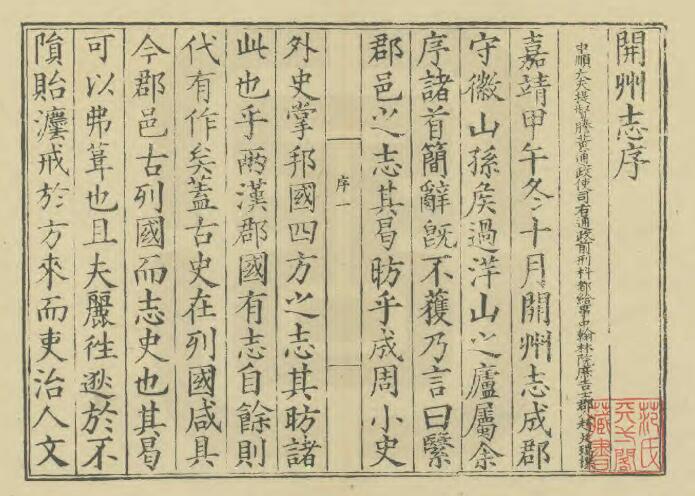 開州志序
中順大夫提督謄黃通政使司右通政前刑科都給事中翰林院庶吉士郡人
嘉靖甲午冬十月開州志成郡
守徽山孫矦過洋山之廬屬余
序諸首簡辭旣不獲乃言曰繄
郡邑之志其曷昉乎成周小史
序一
外史掌邦國四方之志其昉諸
此也乎兩漢郡國有志自餘則
代有作矣蓋古史在列國咸具
今郡邑古列國而志史也其曷
可以弗葺也且夫麗徃逖於不
隕貽灋戒於方來而吏治人文
范氏天一閣藏書